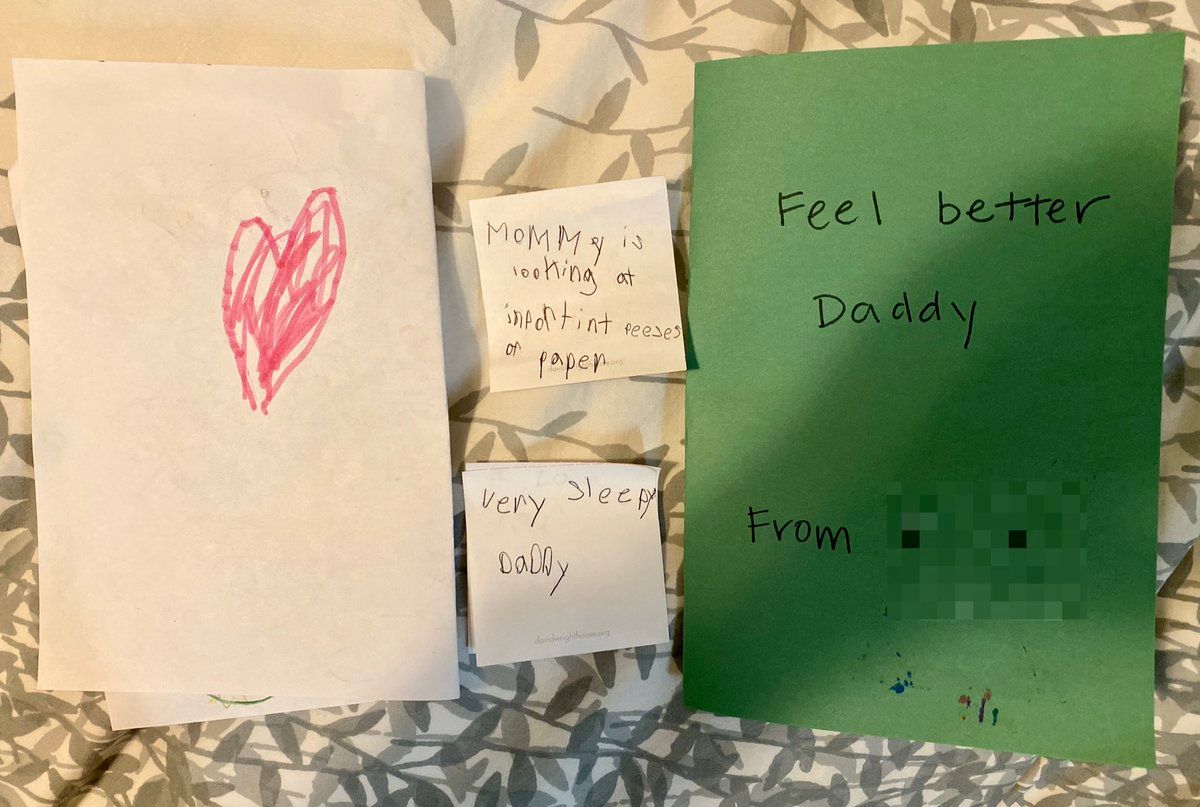 MOMMy is
looking at
inportint peeses
of paper
very sleepy
DaDDy
davidwrighthouse.org
Feel better
Daddy
From